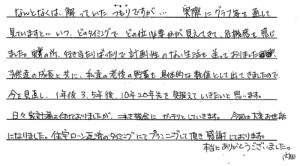 なんとなくは、解っていた つもりですが… 実際にグラフ等を通して
見ていますと… いつ、どのタイミングで どの位は要るかが見えてきて、危機感も感じ
ました。現実の所、行き当たりばったりで計画性のない生活を送っておりました
子供達の成長と共に、私達の老後の貯蓄も具体的な数値として出てきましたので、
今を見直し、1年後3、5年後、10年20年先を見据えていきたいと思います。
日々家計簿はつけていましたが、これを機会にがんばっていきます。今回は大変お世話
になりました。住宅ローン返済のタイミングにてプランニングして頂き感謝しております。
本当にありがとうございました。